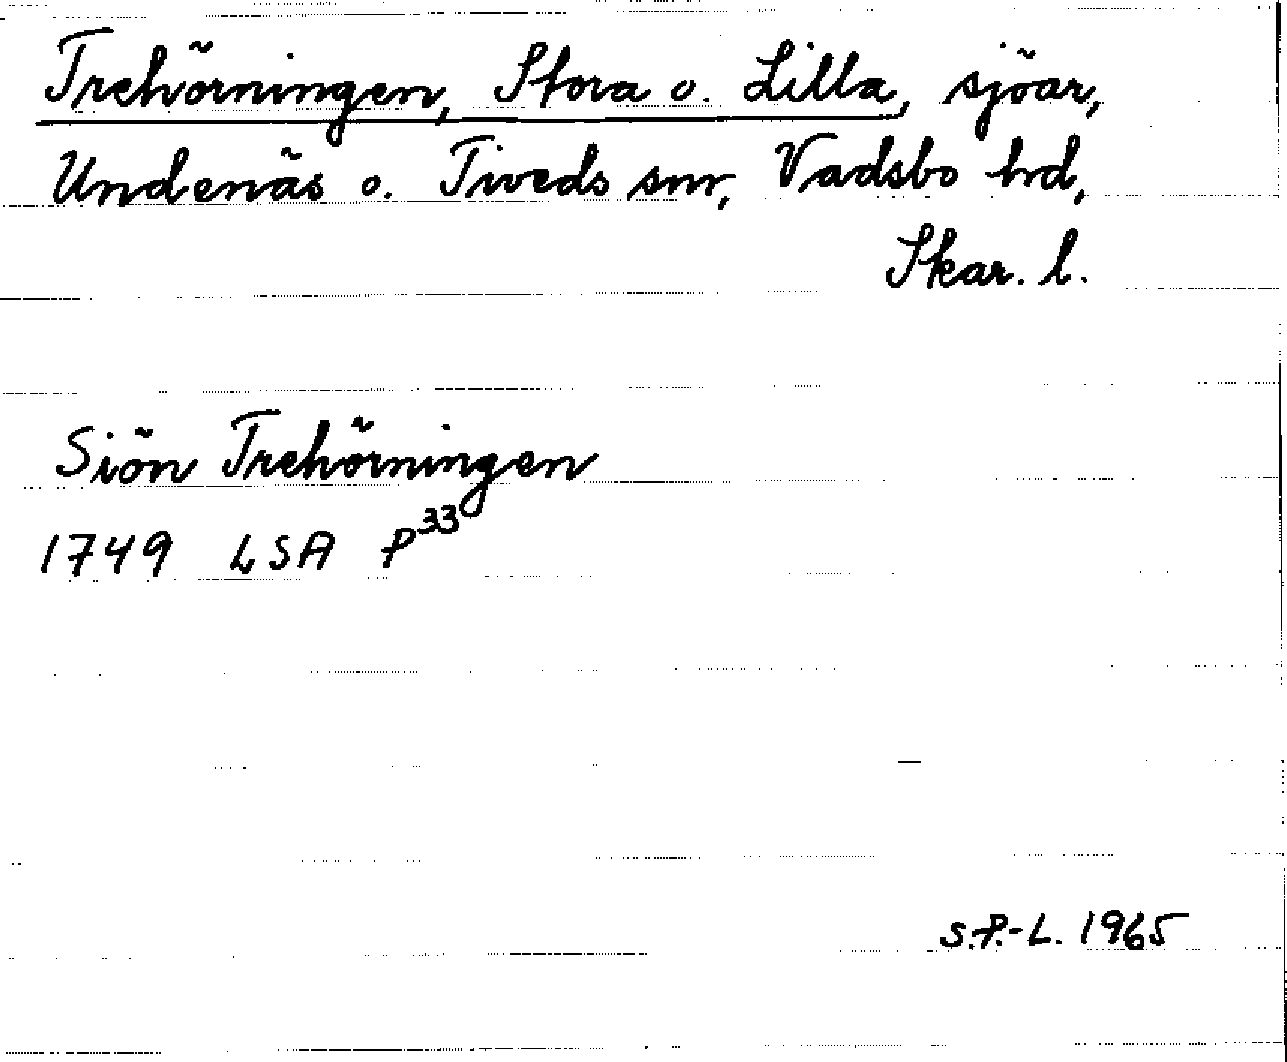 Trehörningen, Stora o. Lilla, sjöar,
Undenäs o. Tiveds snr, Vadsbo hd,
Skar. l.
Siön Trehörningen
1749 LSA P³³
S.P.-L. 1965